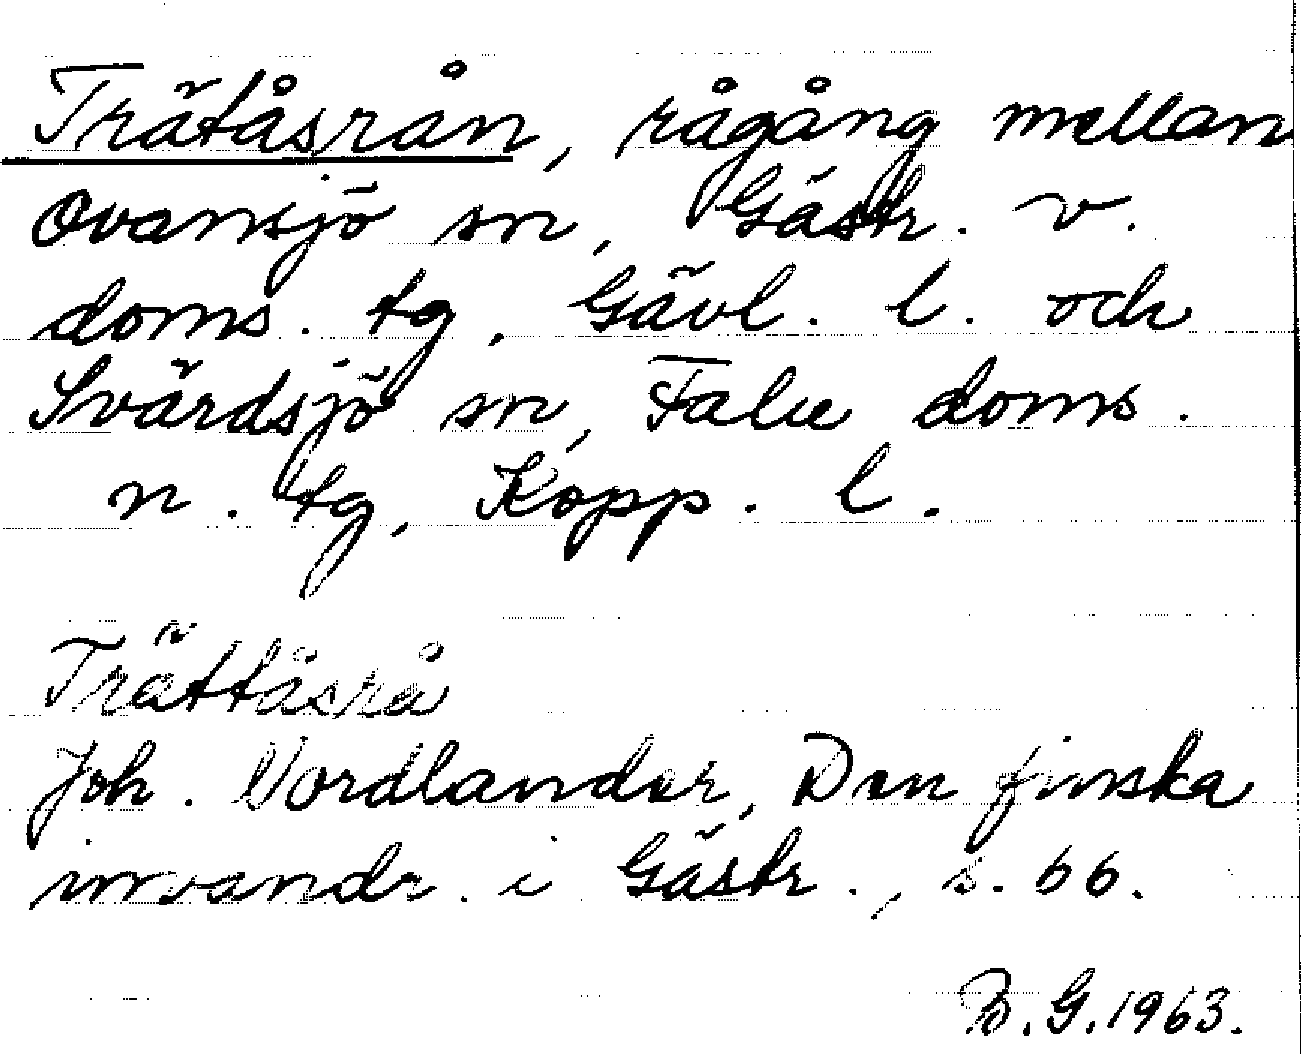 Trätåsrån, rågång mellan
Ovansjö sn, Gästr. v.
doms. tg, Gävl. l. och
Svärdsjö sn, Falu doms.
n. tg, Kopp. l.
Trättåsrå
Joh. Nordlander, Den finska
invandr. i Gästr., s. 66.
B.G.1963.